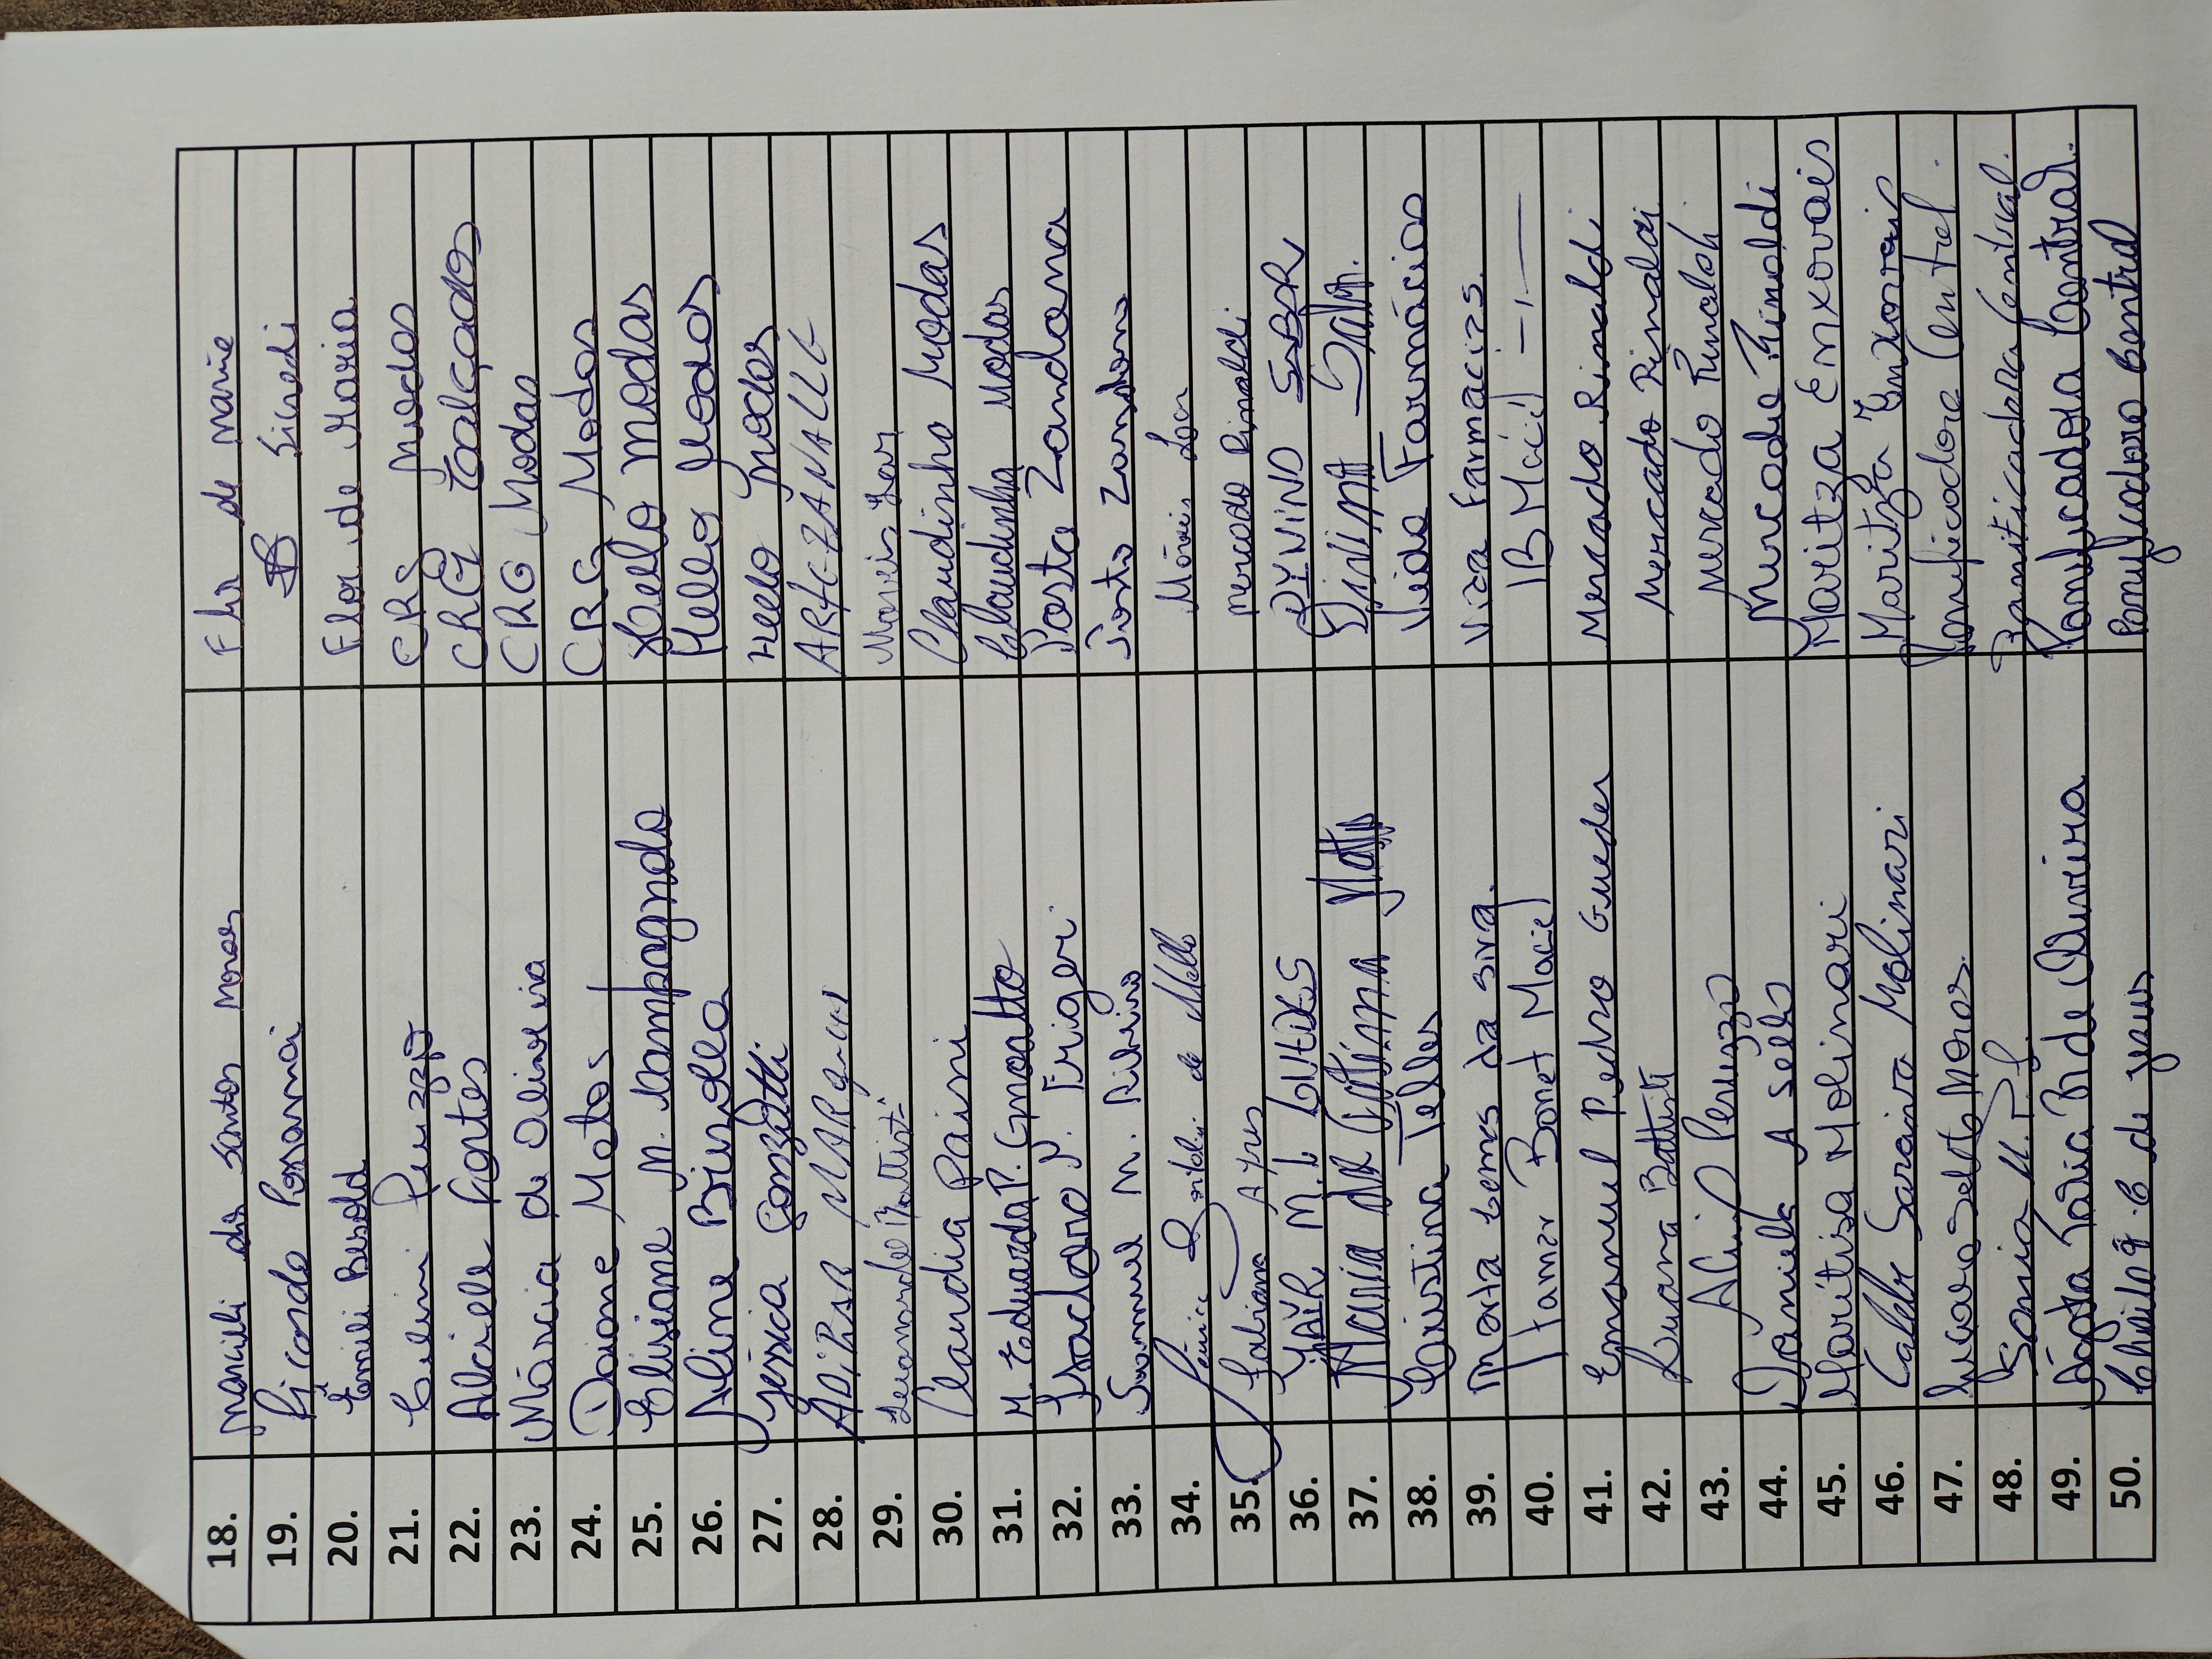 18. Marieli dos Santos Moraes Flor de Marie
19. Ricardo Sicredi
20. Emili Besold Flor de Maria
21. Peruzzo CRS Modas
22. Alciele Fortes CRG Calçados
23. Márcia de Oliveira CRG Modas
24. Daione Matos CRG Modas
25. Elisiane N. Compagnolo Hello Modas
26. Aline Brizolla Hello Modas
27. Jéssica Gonzatti Hello Modas
28. ADiBAR MARques ARTE-ZANALLE
29. Leonardo Battisti
30. Claudia Paini Claudinho Modas
31. M. Eduarda P. Gmoatto Claudinho Modas
32. P. Frigeri Posto Zandona
33. Samuel M. Ribeiro Posto Zandona
34. de Mello Móveis
35. Fabiane Ayres Mercado Rinaldi
36. YAÏR M. L. DIVINO SABOR
37. Maria
38. Cristina Telles Vida Farmácias
39. Marta Lemes da Silva. Vida Farmacias.
40. Itamar Bonet Maciel IB Maciel
41. Emanuel Pedro Guedes Mercado Rinaldi
42. Luana Battisti Mercado Rinaldi
43. Peruzzo Mercado Rinaldi
44. Daniela A Selles Mercado Rinaldi
45. Maritisa Molinari Maritza Enxovais
46. Saraiva Molinari Maritza Enxovais
47. Panificadora Central.
48. Sonia M. Panificadora Central.
49. Maria B. de Oliveira Panificadora Central.
50. de Jesus Panificadora Central